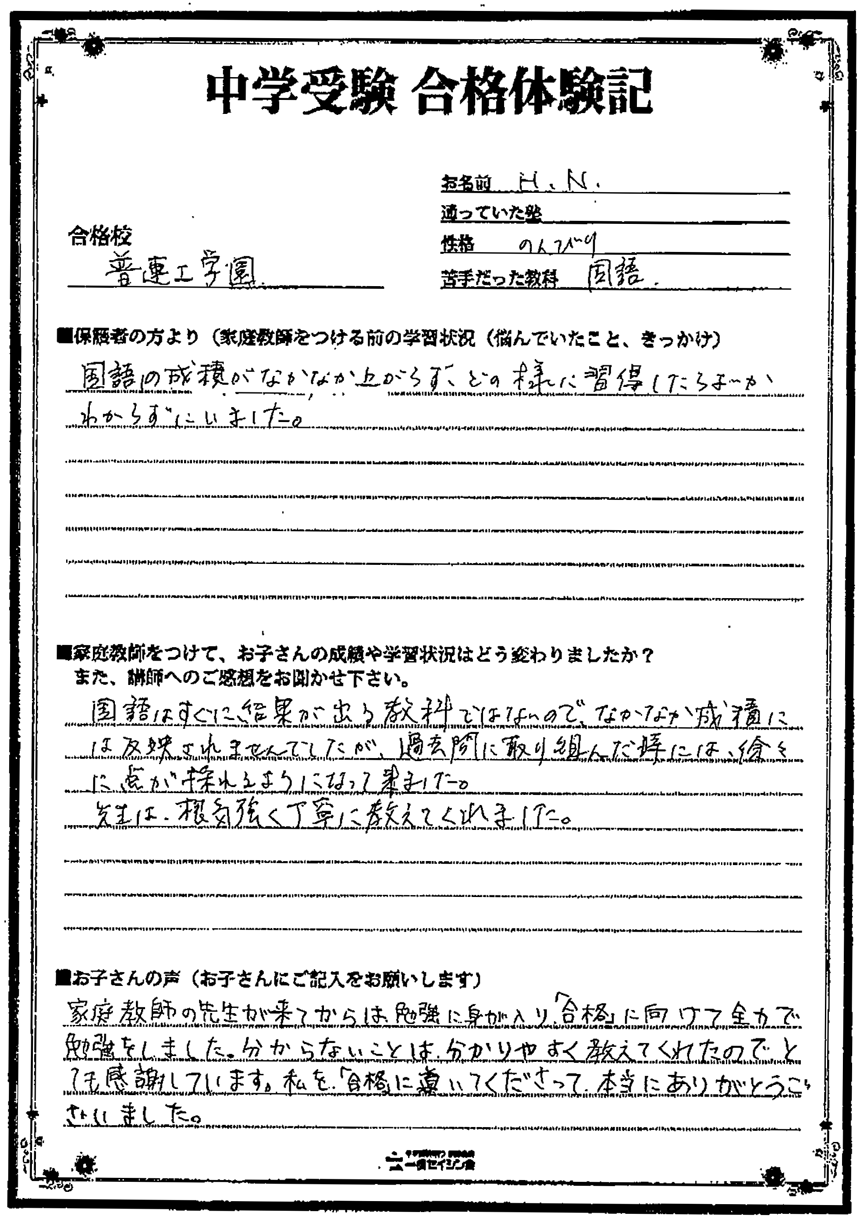 中学受験 合格体験記
お名前 H.N.
通っていた塾
合格校
性格 のんびり
普連土学園
苦手だった教科 国語.
■保護者の方より（家庭教師をつける前の学習状況（悩んでいたこと、きっかけ）
国語の成積がなかなか上がらず、どの様に習得したらよいか
わからずにいました。
■家庭教師をつけて、お子さんの成績や学習状況はどう変わりましたか？
また、講師へのご感想をお聞かせ下さい。
国語はすぐに結果が出る教科ではないので、なかなか成積に
は反映されませんでしたが、過去問に取り組んだ際には、徐々
に点が採れるようになって来ました。
先生は、根気強く丁寧に教えてくれました。
■お子さんの声（お子さんにご記入をお願いします）
家庭教師の先生が来てからは、勉強に身が入り、「合格」に向けて全力で
勉強をしました。分からないことは、分かりやすく教えてくれたのでと
ても感謝しています。私を、「合格」に導いてくださって、本当にありがとうご
ざいました。
一橋セイシン会